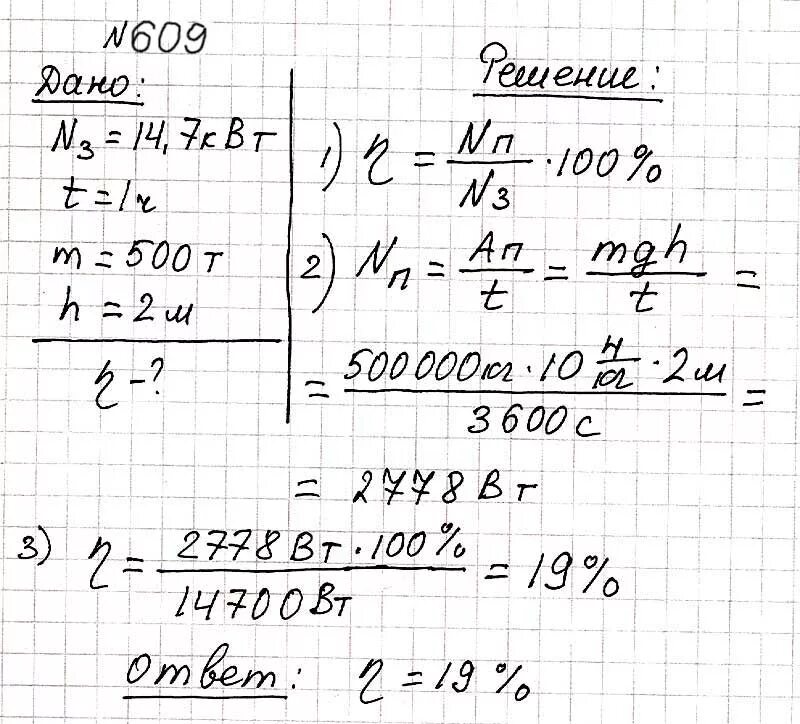 №609
Дано:
N₃ = 14,7 кВт
t = 1 ч
m = 500 т
h = 2 м
η - ?
Решение:
1) η = Nп / N₃ · 100%
2) Nп = Aп / t = mgh / t =
= 500 000 кг · 10 Н/кг · 2 м / 3600 с =
= 2778 Вт
3) η = 2778 Вт · 100% / 14700 Вт = 19%
Ответ: η = 19%